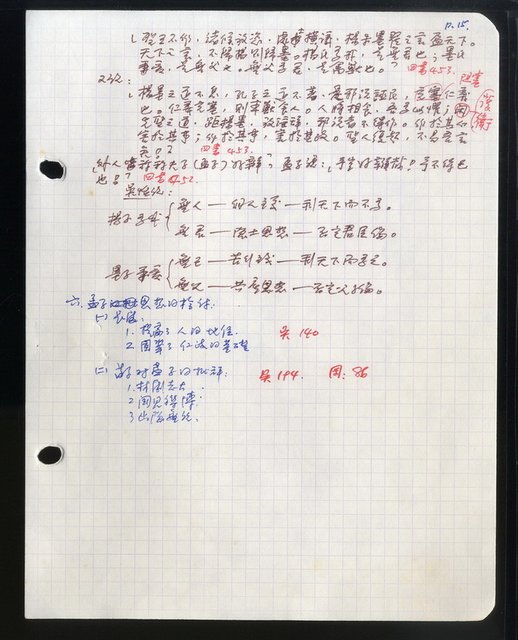 P.15.
「聖王不作，諸侯放恣，處士橫議，楊朱墨翟之言盈天下。
天下之言，不歸楊則歸墨。楊氏為我，是無君也；墨氏
兼愛，是無父也。無父無君，是禽獸也。」 四書453.
又說：
「楊墨之道不息，孔子之道不著，是邪說誣民，充塞仁義
也。仁義充塞，則率獸食人，人將相食。吾為此懼，閑
先聖之道，距楊墨，放淫辭，邪說者不得作。作於其心，
害於其事；作於其事，害於其政。聖人復起，不易吾言
矣。」 四書453.
「外人皆稱夫子(孟子)好辯」孟子說：「予豈好辯哉？予不得已
也？」 四書452.
楊子為我
無人——個人主義——利天下而不為。
無君——隱士思想——否定君臣倫。
墨子兼愛
無己——苦行——利天下而為之。
無父——思想——否定父子倫。
六. 孟子思想的檢討
(一)貢獻：
1. 提高了人的地位. 吳 140
2. 固築了仁政的基礎
(二)荀對孟子的批評： 吳194. 周: 86
1. 材劇志大
2. 聞見雜博
3.